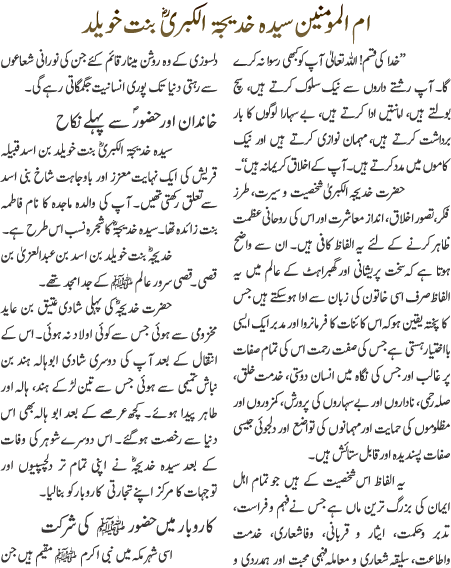 ام المومنین سیدہ خدیجۃ الکبریٰؓ بنت خویلد
”خدا کی قسم! اللہ تعالیٰ آپ کو کبھی رسوا نہ کرے
گا۔ آپ رشتے داروں سے نیک سلوک کرتے ہیں، سچ
بولتے ہیں، امانتیں ادا کرتے ہیں، بے سہارا لوگوں کا بار
برداشت کرتے ہیں، مہمان نوازی کرتے ہیں اور نیک
کاموں میں مدد کرتے ہیں۔ آپ کے اخلاق کریمانہ ہیں“۔
حضرت خدیجۃ الکبریٰؓ شخصیت و سیرت، طرز
فکر، تصور اخلاق، انداز معاشرت اور اس کی روحانی عظمت
ظاہر کرنے کے لئے یہ الفاظ کافی ہیں۔ ان سے واضح
ہوتا ہے کہ سخت پریشانی اور گھبراہٹ کے عالم میں یہ
الفاظ صرف اسی خاتون کی زبان سے ادا ہوسکتے ہیں جس
کا پختہ یقین ہو کہ اس کائنات کا فرمانروا اور مدبر ایک ایسی
بااختیار ہستی ہے جس کی صفت رحمت اس کی تمام صفات
پر غالب اور جس کی نگاہ میں انسان دوستی، خدمت خلق،
صلہ رحمی، ناداروں اور بے سہاروں کی پرورش، کمزوروں اور
مظلوموں کی حمایت اور مہمانوں کی تواضع اور دلجوئی جیسی
صفات پسندیدہ اور قابل ستائش ہیں۔
یہ الفاظ اس شخصیت کے ہیں جو تمام اہل
ایمان کی بزرگ ترین ماں ہے جس نے فہم و فراست،
تدبر و حکمت، ایثار و قربانی، وفا شعاری، خدمت
و اطاعت، سلیقہ شعاری و معاملہ فہمی محبت اور ہمدردی و
دلسوزی کے وہ روشن مینار قائم کئے جن کی نورانی شعاعوں
سے رہتی دنیا تک پوری انسانیت جگمگاتی رہے گی۔
خاندان اور حضورؐ سے پہلے نکاح
سیدہ خدیجۃ الکبریٰؓ بنت خویلد بن اسد قبیلہ
قریش کی ایک نہایت معزز اور باوجاہت شاخ بنی اسد
سے تعلق رکھتی تھیں۔ آپ کی والدہ ماجدہ کا نام فاطمہ
بنت زائدہ تھا۔ سیدہ خدیجہؓ کا شجرہ نسب اس طرح ہے۔
خدیجہؓ بنت خویلد بن اسد بن عبدالعزیٰ بن
قصی۔ قصی سرور عالم ﷺ کے جد امجد تھے۔
حضرت خدیجہؓ کی پہلی شادی عتیق بن عاید
مخزومی سے ہوئی جس سے کوئی اولاد نہ ہوئی۔ اس کے
انتقال کے بعد آپ کی دوسری شادی ابوہالہ ہند بن
نباش تمیمی سے ہوئی جس سے تین لڑکے ہند، ہالہ اور
طاہر پیدا ہوئے۔ کچھ عرصے کے بعد ابوہالہ بھی اس
دنیا سے رخصت ہوگئے۔ اس دوسرے شوہر کی وفات
کے بعد سیدہ خدیجہؓ نے اپنی تمام تر دلچسپیوں اور
توجہات کا مرکز اپنے تجارتی کاروبار کو بنالیا۔
کاروبار میں حضور ﷺ کی شرکت
اسی شہر مکہ میں نبی اکرم ﷺ مقیم ہیں جن